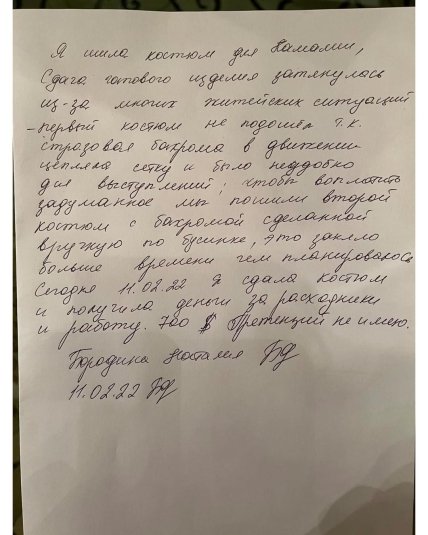 Я шила костюм для Натамии,
Сдача готового изделия затянулась
из-за многих житейских ситуаций
-первый костюм не подошёл т.к.
стразовая бахрома в движении
цепляла сетку и было неудобно
для выступлений; чтобы воплотить
задуманное мы пошили второй
костюм с бахромой сделанной
вручную по бусинке, это заняло
больше времени чем планировалось
Сегодня 11.02.22 Я сдала костюм
и получила деньги за расходники
и работу. 700 $ Претензий не имею.
Бородина Наталия
11.02.22